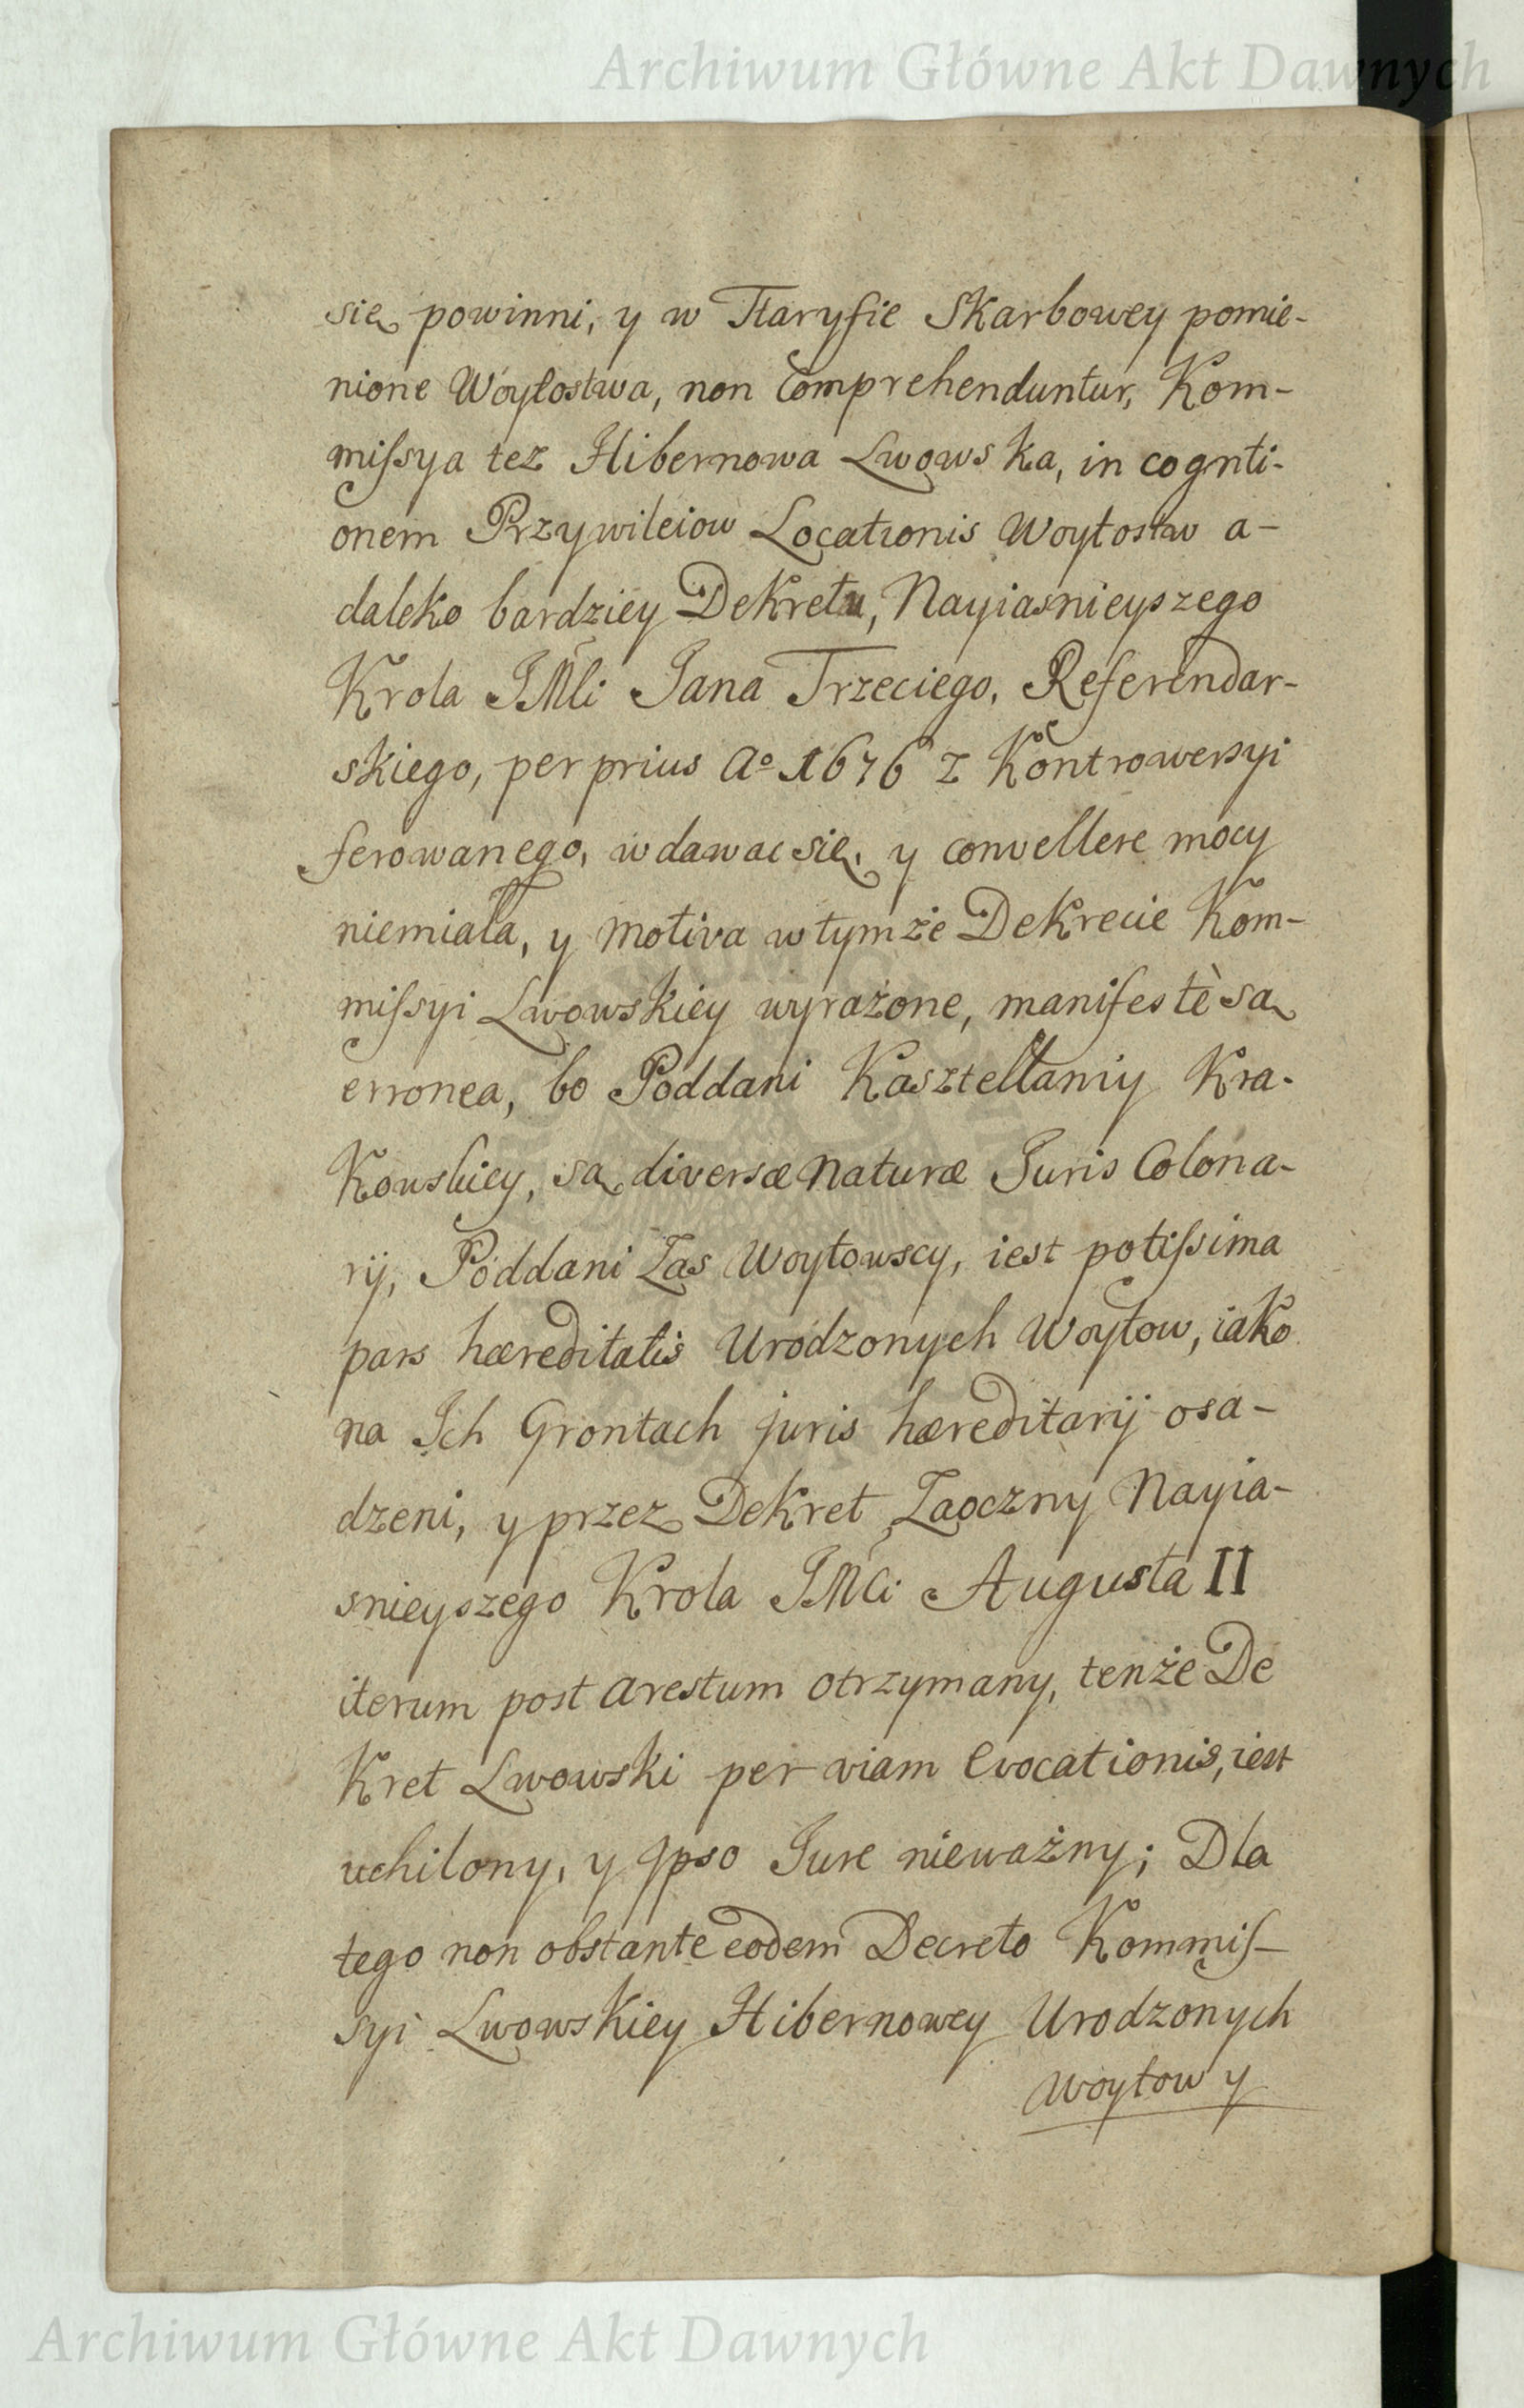 Archiwum Główne Akt Dawnych
się powinni, y w Taryfie Skarbowey pomie-
nione Woytostwa, non Comprehenduntur, Kom-
missya tez Hibernowa Lwowska, in cogniti-
onem Przywileiow Locationis Woytostw a-
daleko bardziey Dekretu, Nayiasnieyszego
Krola JMći Jana Trzeciego, Referendar-
skiego, per prius Aº 1676 z Kontrowersyi
ferowanego, wdawac się, y convellere mocy
niemiała, y motiva w tymże Dekrecie Kom-
missyi Lwowskiey wyrażone, manifestè są
erronea, bo Poddani Kasztellaniy Kra-
Kowskiey, są diversæ naturæ Juris Colona-
rij, Poddani Zas Woytowscy, iest potissima
pars hæreditatis Urodzonych Woytow, iako
na Jch Grontach juris hæreditarij osa-
dzeni, y przez Dekret Zaoczny Nayia-
snieyszego Krola JMći Augusta II
iterum post arestum otrzymany, tenże De
Kret Lwowski per viam Evocationis, iest
uchilony, y Jpso Jure nieważny; Dla
tego non obstante eodem Decreto Kommis-
syi Lwowskiey Hibernowey Urodzonych
Woytow y
Archiwum Główne Akt Dawnych